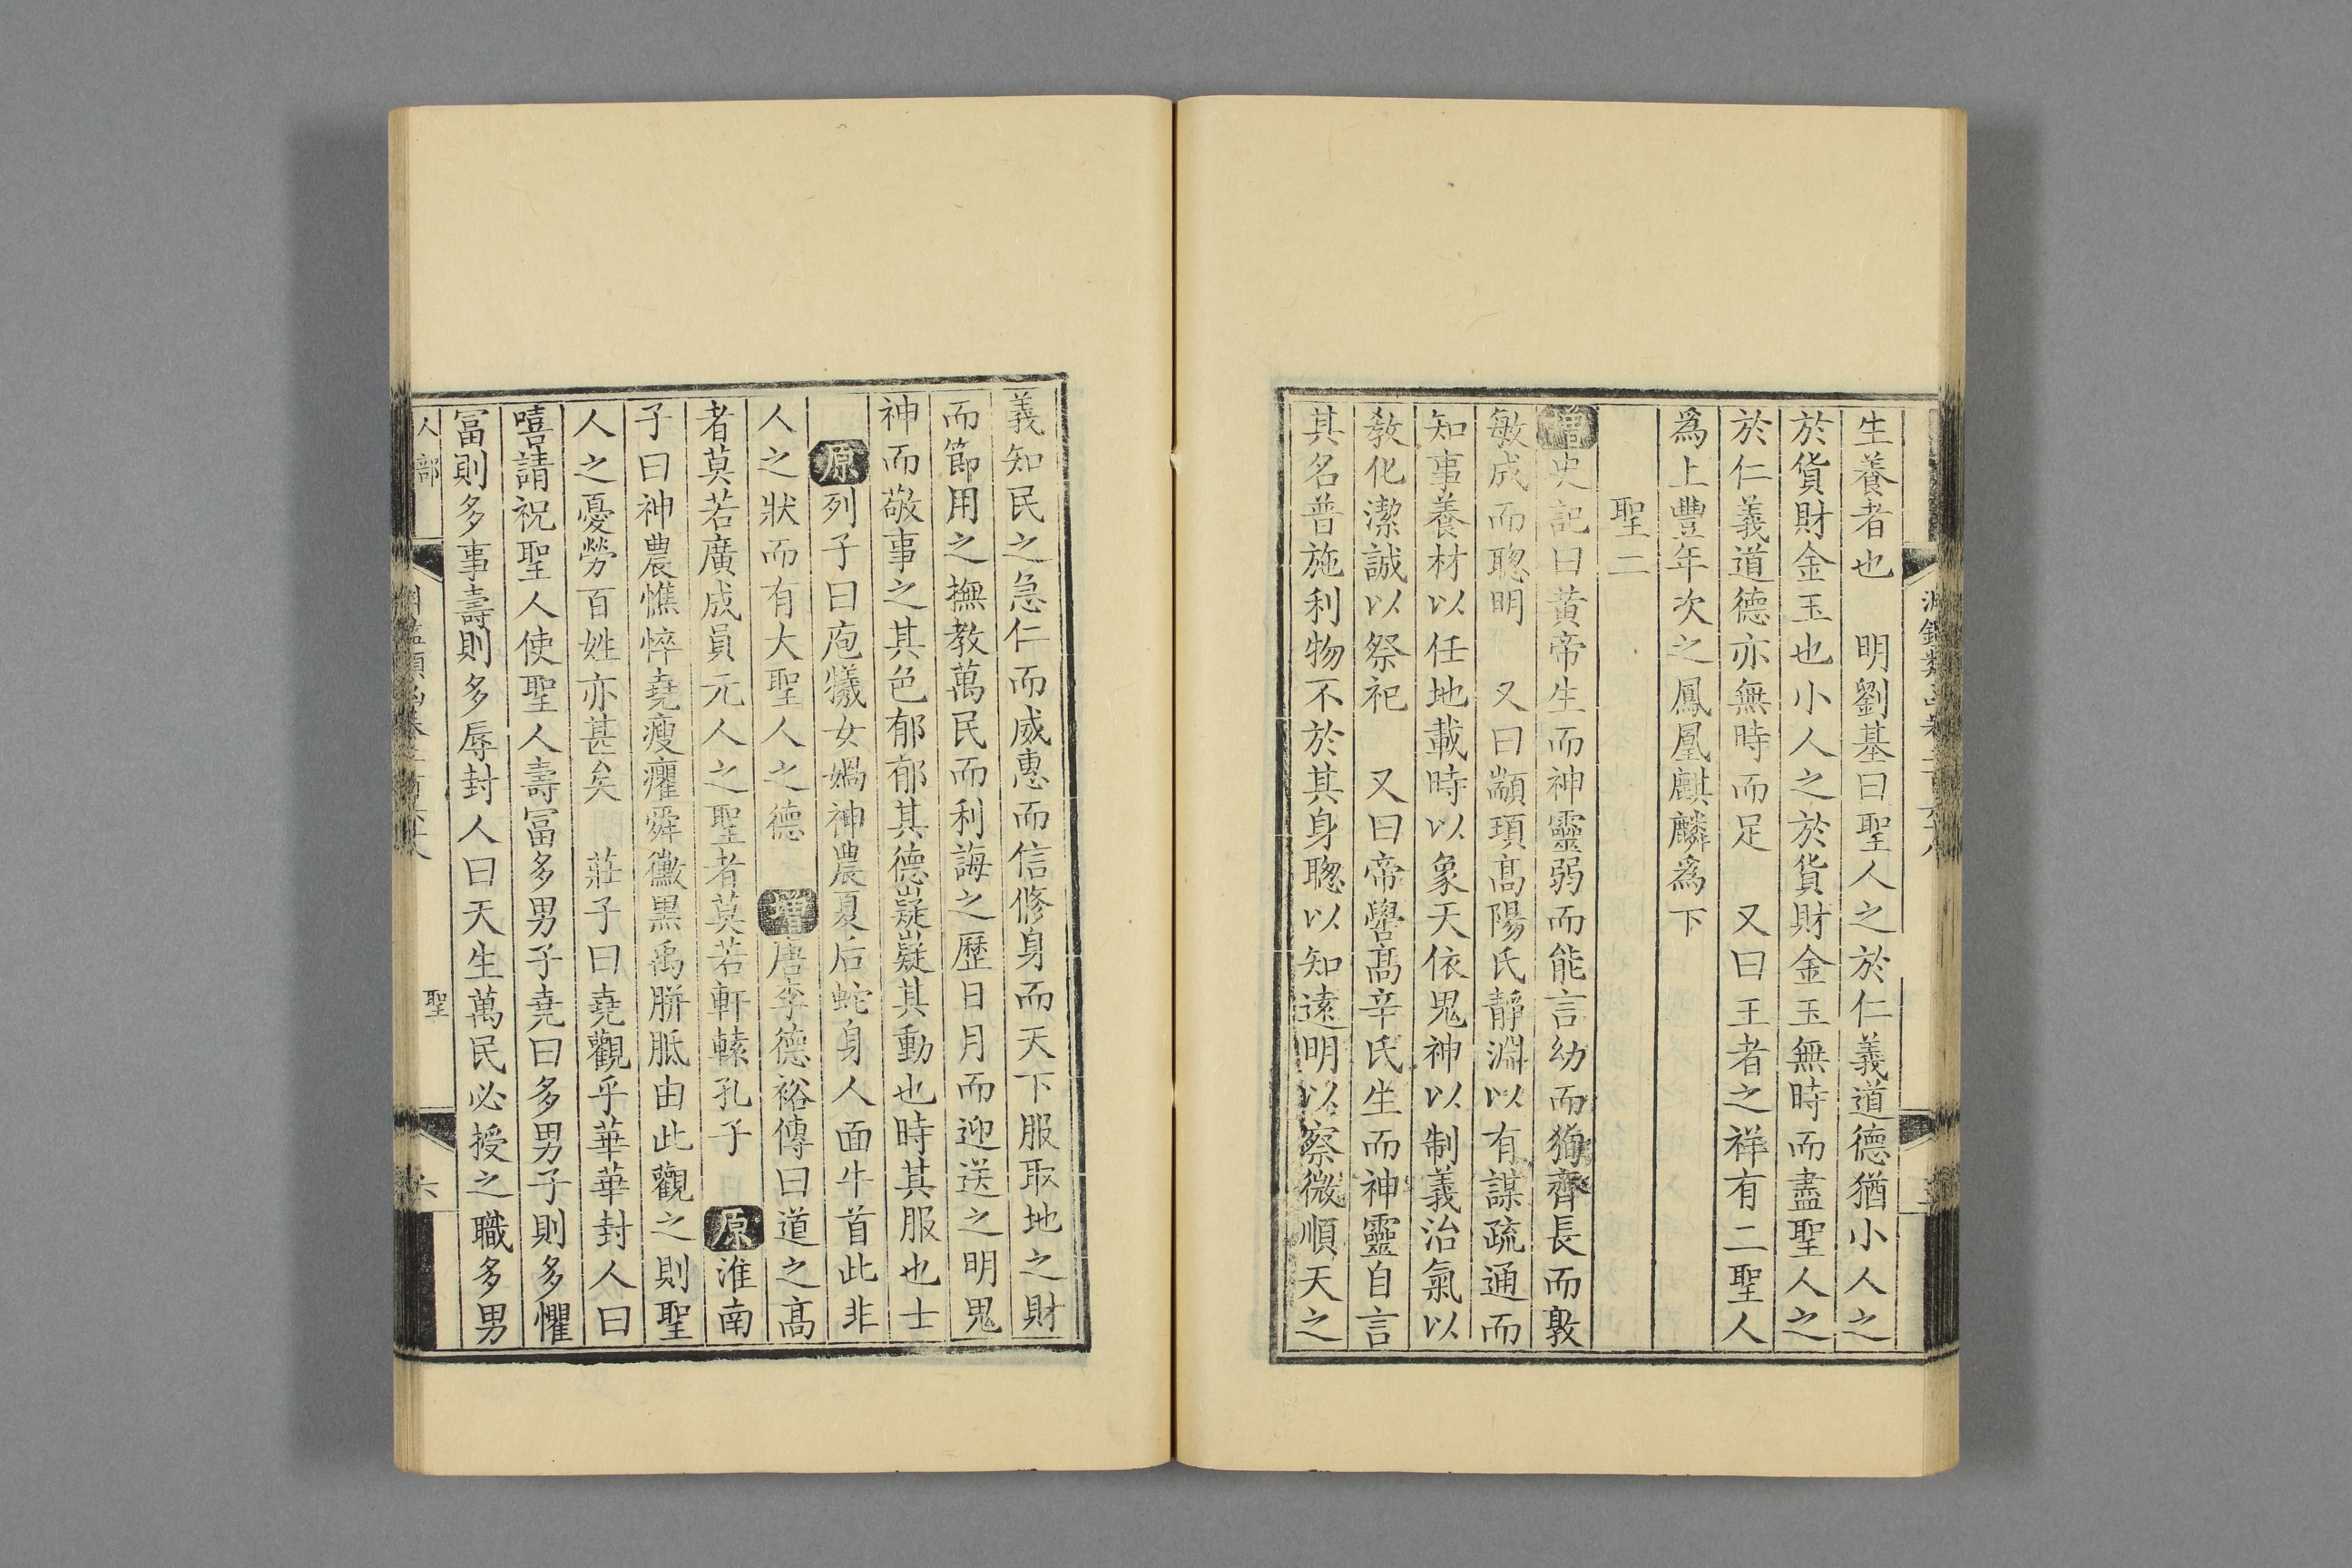 生養者也　明劉基曰聖人之於仁義道德猶小人之
於貨財金玉也小人之於貨財金玉無時而盡聖人之
於仁義道德亦無時而足　又曰王者之祥有二聖人
爲上豐年次之鳳凰麒麟爲下
聖二
增史記曰黃帝生而神靈弱而能言幼而狥齊長而敦
敏成而聰明　又曰顓頊高陽氏靜淵以有謀疏通而
知事養材以任地載時以象天依鬼神以制義治氣以
教化潔誠以祭祀　又曰帝嚳高辛氏生而神靈自言
其名普施利物不於其身聰以知遠明以察微順天之
義知民之急仁而威惠而信修身而天下服取地之財
而節用之撫教萬民而利誨之歷日月而迎送之明鬼
神而敬事之其色郁郁其德嶷嶷其動也時其服也士
原列子曰庖犧女媧神農夏后蛇身人面牛首此非
人之狀而有大聖人之德　增唐李德裕傳曰道之高
者莫若廣成員元人之聖者莫若軒轅孔子　原淮南
子曰神農憔悴堯瘦癯舜黴黑禹胼胝由此觀之則聖
人之憂勞百姓亦甚矣　莊子曰堯觀乎華華封人曰
嘻請祝聖人使聖人壽富多男子堯曰多男子則多懼
富則多事壽則多辱封人曰天生萬民必授之職多男
人部
聖
六